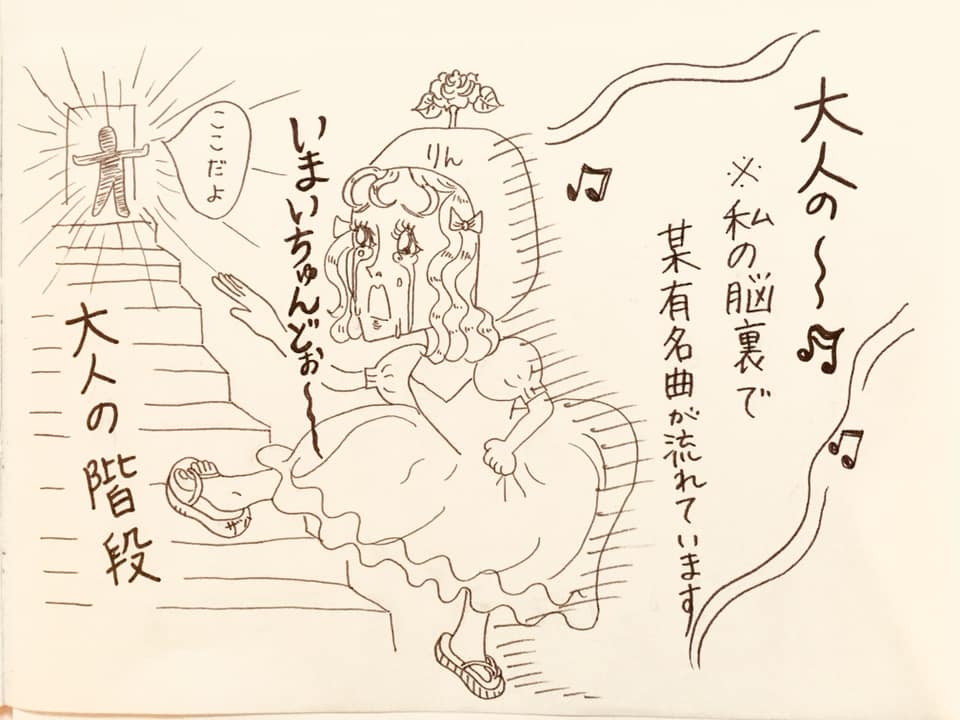 大人の〜
※私の脳裏で
某有名曲が流れています
りん
いまいちゅんどぉ〜
ここだよ
大人の階段
ザッ